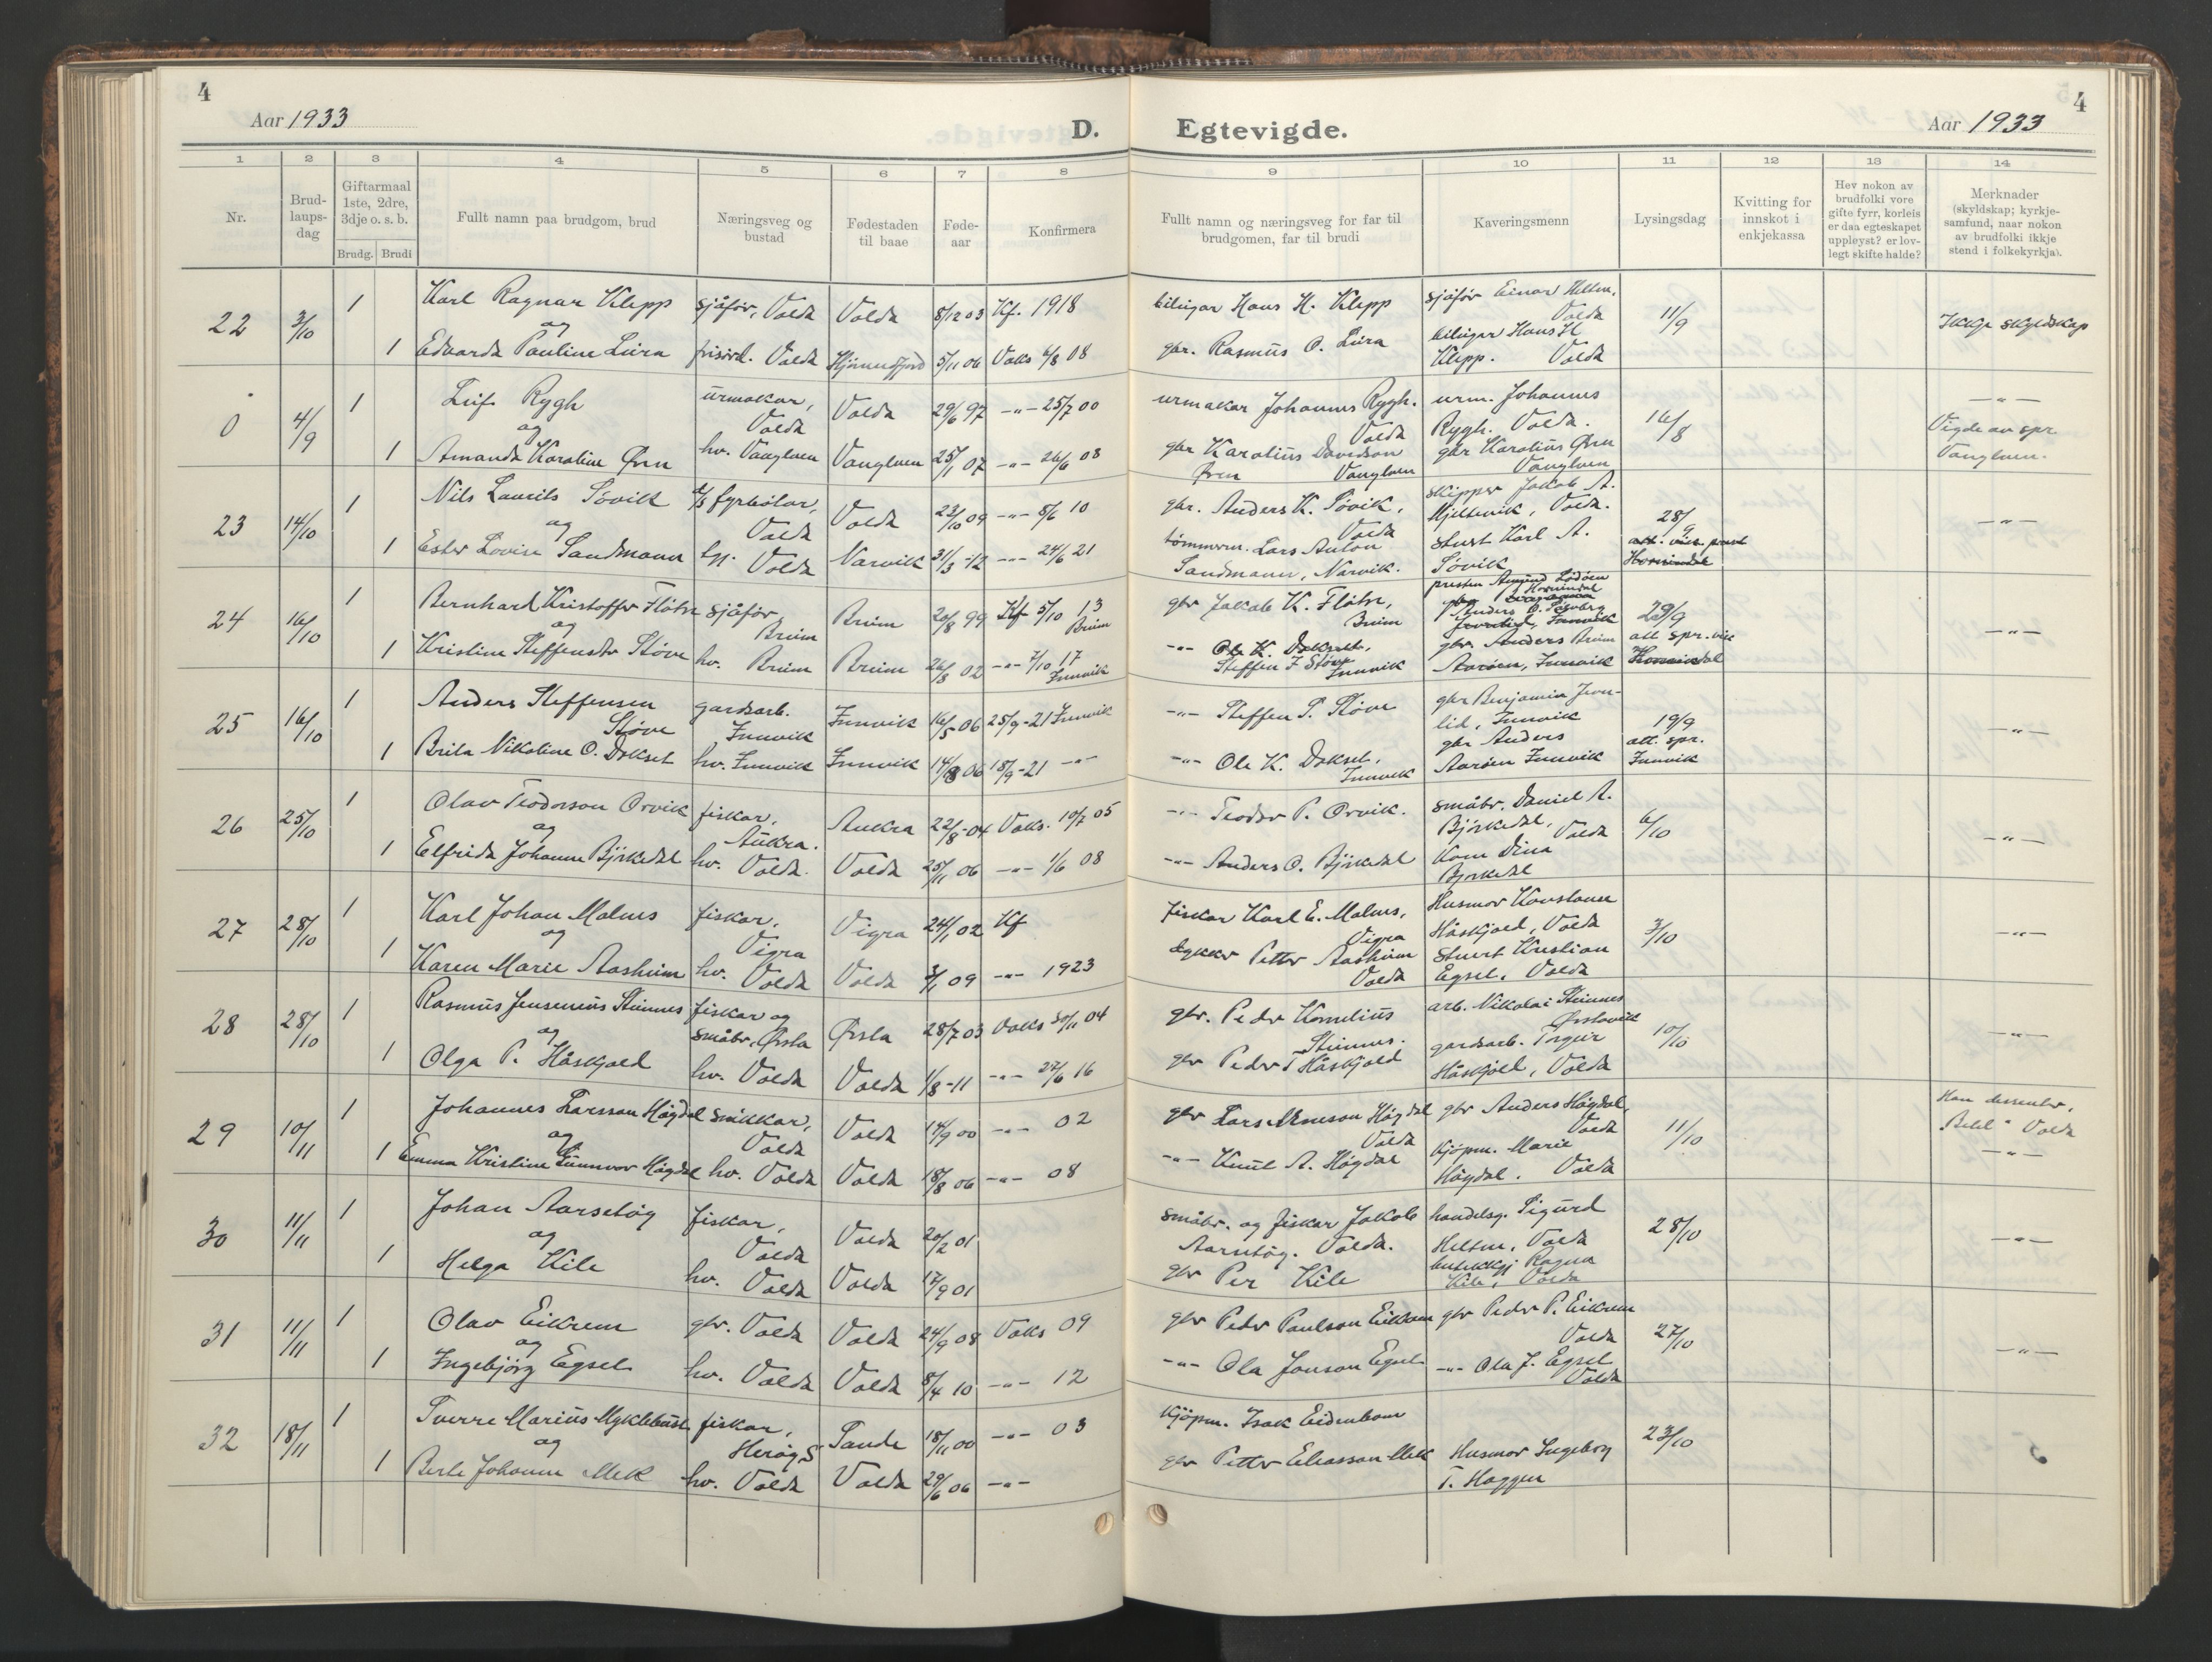 4
Aar 1933
D. Egtevigde.
Aar 1933
4
1 2 3 4 5 6 7 8 9 10 11 12 13 14
Nr.
Brud-
laups-
dag
Giftarmaal
1ste, 2dre,
3dje o. s. b.
Brudg. Brudi
Fullt namn paa brudgom, brud
Næringsveg og
bustad
Fødestaden
til baae
Føde-
aar
Konfirmera
Fullt namn og næringsveg for far til
brudgomen, far til brudi
Kaveringsmenn
Lysingsdag
Kvitting for
innskot i
enkjekassa
Hev nokon av
brudfolki vore
gifte fyrr, korleis
er daa egteskapet
uppløyst? er lov-
legt skifte halde?
Merknader
(skyldskap; kyrkje-
samfund, naar nokon
av brudfolki ikkje
stend i folkekyrkja).
22 3/10 1 Karl Ragnar Klepp sjåfør, Volda Volda 8/12 03 Kf. 1918 bileigar Hans H. Klepp sjåfør Einar Heltne, Volda 11/9 Ikkje skyldskap
og
1 Edvarda Pauline Liira frisørd. Volda Hjørundfjord 5/11 06 Vaks 6/8 08 gbr. Rasmus O. Liira bileigar Hans H
Klepp. Volda
0 4/9 1 Leif Rygh urmakar, Volda Volda 29/6 97 -"- 25/7 00 urmakar Johannes Rygh. Volda urm. Johannes
Rygh. Volda. 16/8 -"-
Vigde av spr
Vanylven.
og
1 Amanda Karoline Øren hv. Vanylven Vanylven 25/1 07 -"- 26/6 08 gbr Karolius Davidson
Øren Vanylven gbr Karolius Øren
Vanylven
23 14/10 1 Nils Laurits Søvik d/s fyrbøtar, Volda Volda 22/10 09 -"- 5/6 10 gbr. Anders K. Søvik, Volda skipper Jakob A.
Mjeltevik, Volda. 28/9 -"-
og
1 Ester Lovise Sandmann Volda Narvik 31/3-12 -"- 24/6 21 tømmerm. Lars Anton
Sandmann, Narvik. stuert Karl A.
Søvik
Hornindal
24 16/10 1 Bernhard Kristoffer Fløtre sjåfør
Briim Briim 20/8 99 Kf 5/10 13
Briim gbr Jakob K. Fløtre,
Briim presten Amund Lødøen
Hornindal 29/9
att. spr. vik
Hornindal -"-
og
1 Kristine Steffensdtr Støve hv. Briim Briim 26/8 02 -"- 7/10 17
Innvik -"- Ole K. Dokset,
Steffen J Støve
Innvik gbr. Anders Briim
Aarøen, Innvik
25 16/10 1 Anders Steffensen
Støve gardsarb.
Innvik Innvik 16/5 06 25/9-21 Innvik -"- Steffen P. Støve gbr Benjamin Jevn-
lid, Innvik 19/9
att. spr.
Innvik -"-
1 Brita Nikoline O. Dokset hv. Innvik Innvik 14/8 06 18/9-21 -"- -"- Ole K. Dokset,
Innvik gbr Anders
Aarøen Innvik
26 25/10 1 Olav Teodorson Orvik fiskar,
Aukra. Aukra 22/8-04 Vaks. 10/7 05 -"- Teodor P. Orvik. småbr. Daniel A.
Bjørkedal, Volda 6/10 -"-
og
1 Elfrida Johanne Bjørkedal hv. Volda. Volda 25/11 06 -"- 1/6 08 -"- Anders O. Bjørkedal Kone Dina
Bjørkedal
27 28/10 1 Karl Johan Malnes fiskar,
Vigra Vigra 24/1 02 Kf fiskar Karl E. Malnes,
Vigra Husmor Konstanse
Håskjold, Volda 3/10 -"-
og
1 Karen Marie Aasheim hv. Volda Volda 3/1 09 -"- 1923 dykker Petter Aasheim
Volda stuert Kristian
Egset. Volda
28 28/10 1 Rasmus Jensenius Steinnes fiskar og
småbr, Ørsta Ørsta 28/7 03 Vaks 30/11 04 gbr. Peder Kornelius
Steinnes. arb. Nikolai Steinnes
Ørstavik 10/10 -"-
og
1 Olga P. Håskjold hv. Volda Volda 1/8-11 -"- 27/6 16 gbr Peder T Håskjold gardsarb. Torgeir
Håskjold, Volda
29 10/11 1 Johannes Larsson Høgdal snikkar,
Volda Volda 14/9 00 -"- 02 gbr Lars Høgdal
Volda gbr Anders Høgdal,
Volda 11/10 Han dissenter,
"Betel" Volda
-"-
og
1 Emma Kristine Gunnvor Høgdal hv. Volda Volda 18/8 06 -"- 08 -"- Knut A. Høgdal kjøpm. Marie
Høgdal. Volda
30 11/11 1 Johan Aarsetøy fiskar,
Volda Volda 20/2 01 småbr. og fiskar Jakob
Aarsetøy. Volda. handelsg. Sigurd
Heltne, Volda 28/10 -"-
og
1 Helga Kile hv. Volda Volda 17/9 01 gbr Per Kile butikkgj Ragna
Kile, Volda
31 11/11 1 Olav Eikrem gbr. Volda Volda 24/9 08 Vaks 09 gbr Peder Paulson Eikrem gbr Peder P. Eikrem
Volda 27/10 -"-
og
1 Ingebjørg Egset hv. Volda Volda 8/4 10 -"- 12 -"- Ola Jonson Egset -"- Ola J. Egset
Volda
32 18/11 1 Sverre Marius Myklebust fiskar,
Herøy S Sande 18/11 00 -"- 03 kjøpm. Isak Eidenbom 23/10
og
1 Berte Johanne Mek hv. Volda Volda 29/6 06 -"- gbr Petter Eliasson Mek Husmor Ingeborg
T. Haggen